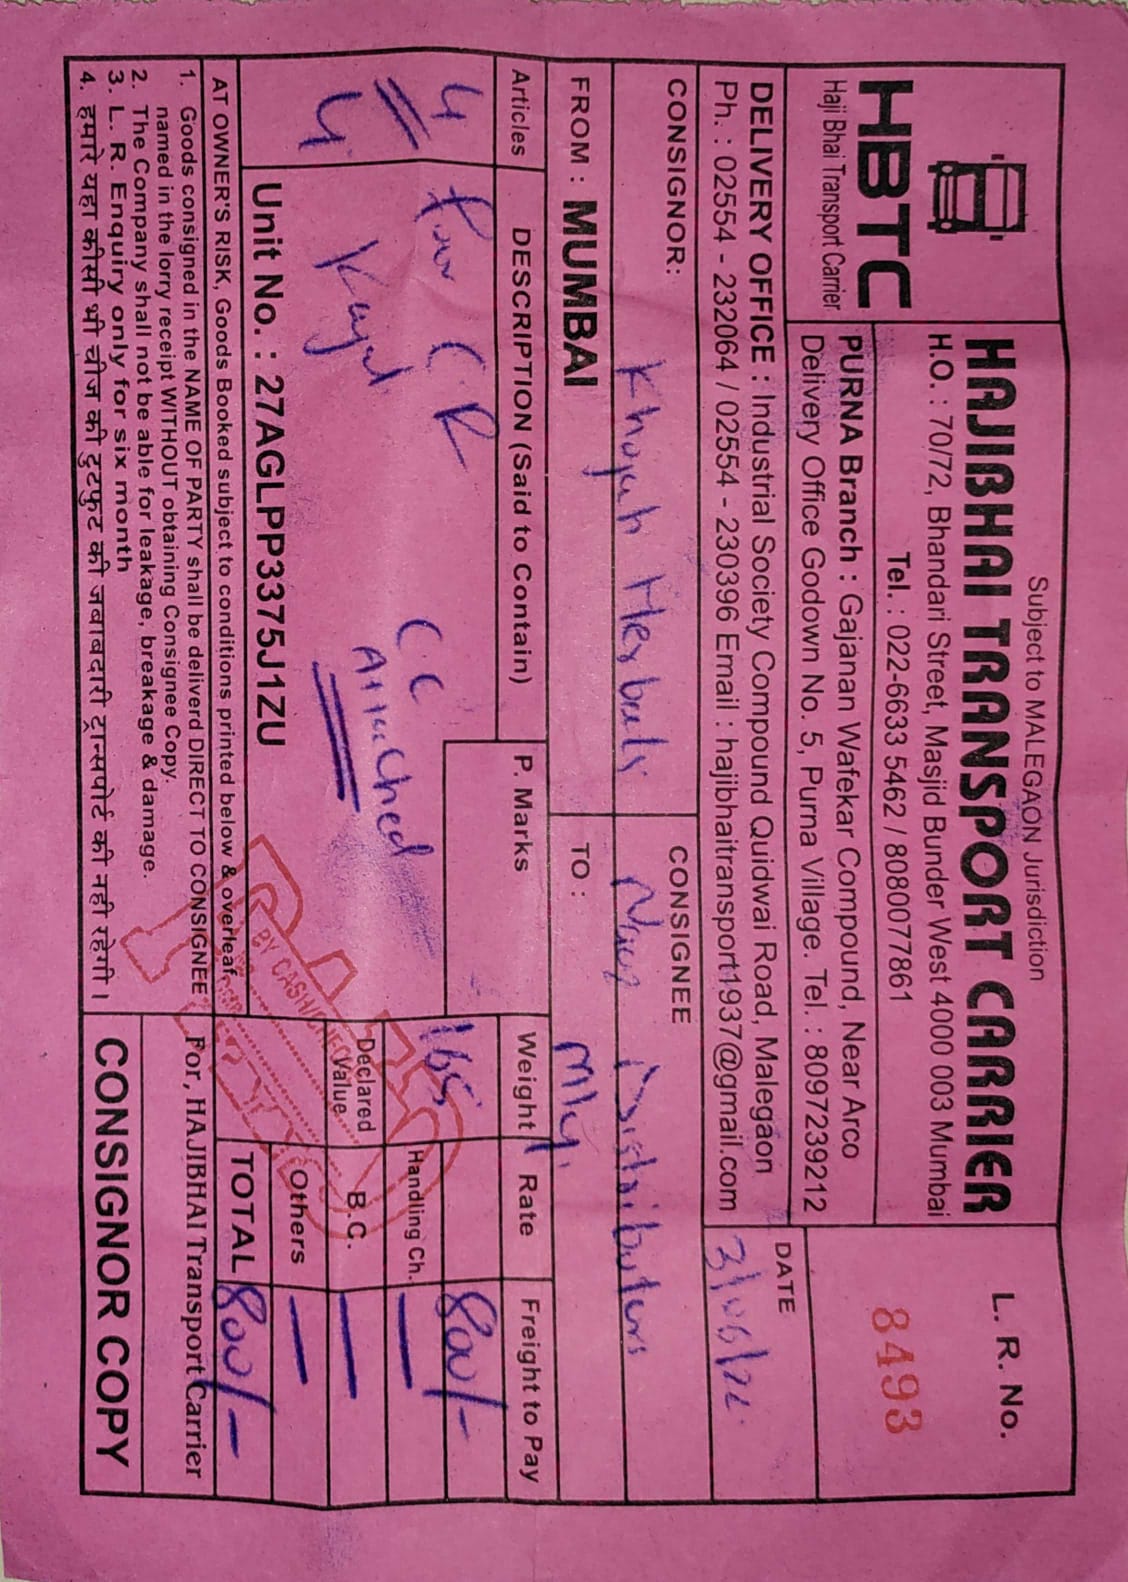 Subject to MALEGAON Jurisdiction
HAJIBHAI TRANSPORT CARRIER
H.O. : 70/72, Bhandari Street, Masjid Bunder West 4000 003 Mumbai
Tel. : 022-6633 5462 / 8080077861
HBTC
Haji Bhai Transport Carrier
PURNA Branch : Gajanan Wafekar Compound, Near Arco
Delivery Office Godown No. 5, Purna Village. Tel. : 8097239212
L. R. No.
8493
DELIVERY OFFICE : Industrial Society Compound Quidwai Road, Malegaon
Ph. : 02554 - 232064 / 02554 - 230396 Email : hajibhaitransport1937@gmail.com
DATE
CONSIGNOR:
Khojati Herbals
CONSIGNEE
Distributors
FROM : MUMBAI
TO : Mly.
Articles DESCRIPTION (Said to Contain) P. Marks Weight Rate Freight to Pay
4 Four C.R 165 800/-
4 Kajal
C.C
Attached
Handling Ch. —
Declared Value B.C. —
Others —
Unit No. : 27AGLPP3375J1ZU
TOTAL 800/-
AT OWNER'S RISK, Goods Booked subject to conditions printed below & overleaf.
1. Goods consigned in the NAME OF PARTY shall be deliverd DIRECT TO CONSIGNEE
named in the lorry receipt WITHOUT obtaining Consignee Copy.
2. The Company shall not be able for leakage, breakage & damage.
3. L. R. Enquiry only for six month
4. हमारे यहा कीसी भी चीज की टुटफुट की जवाबदारी ट्रान्सपोर्ट की नही रहेगी।
For, HAJIBHAI Transport Carrier
CONSIGNOR COPY